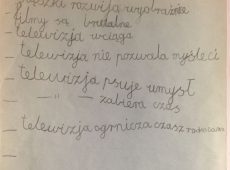 książki rozwija wyobraźnie
filmy są brutalne
- telewizja wciąga
- telewizja nie pozwala myśleć
- telewizja psuje umysł
- —"— zabiera czas
- telewizja ogranicza czas